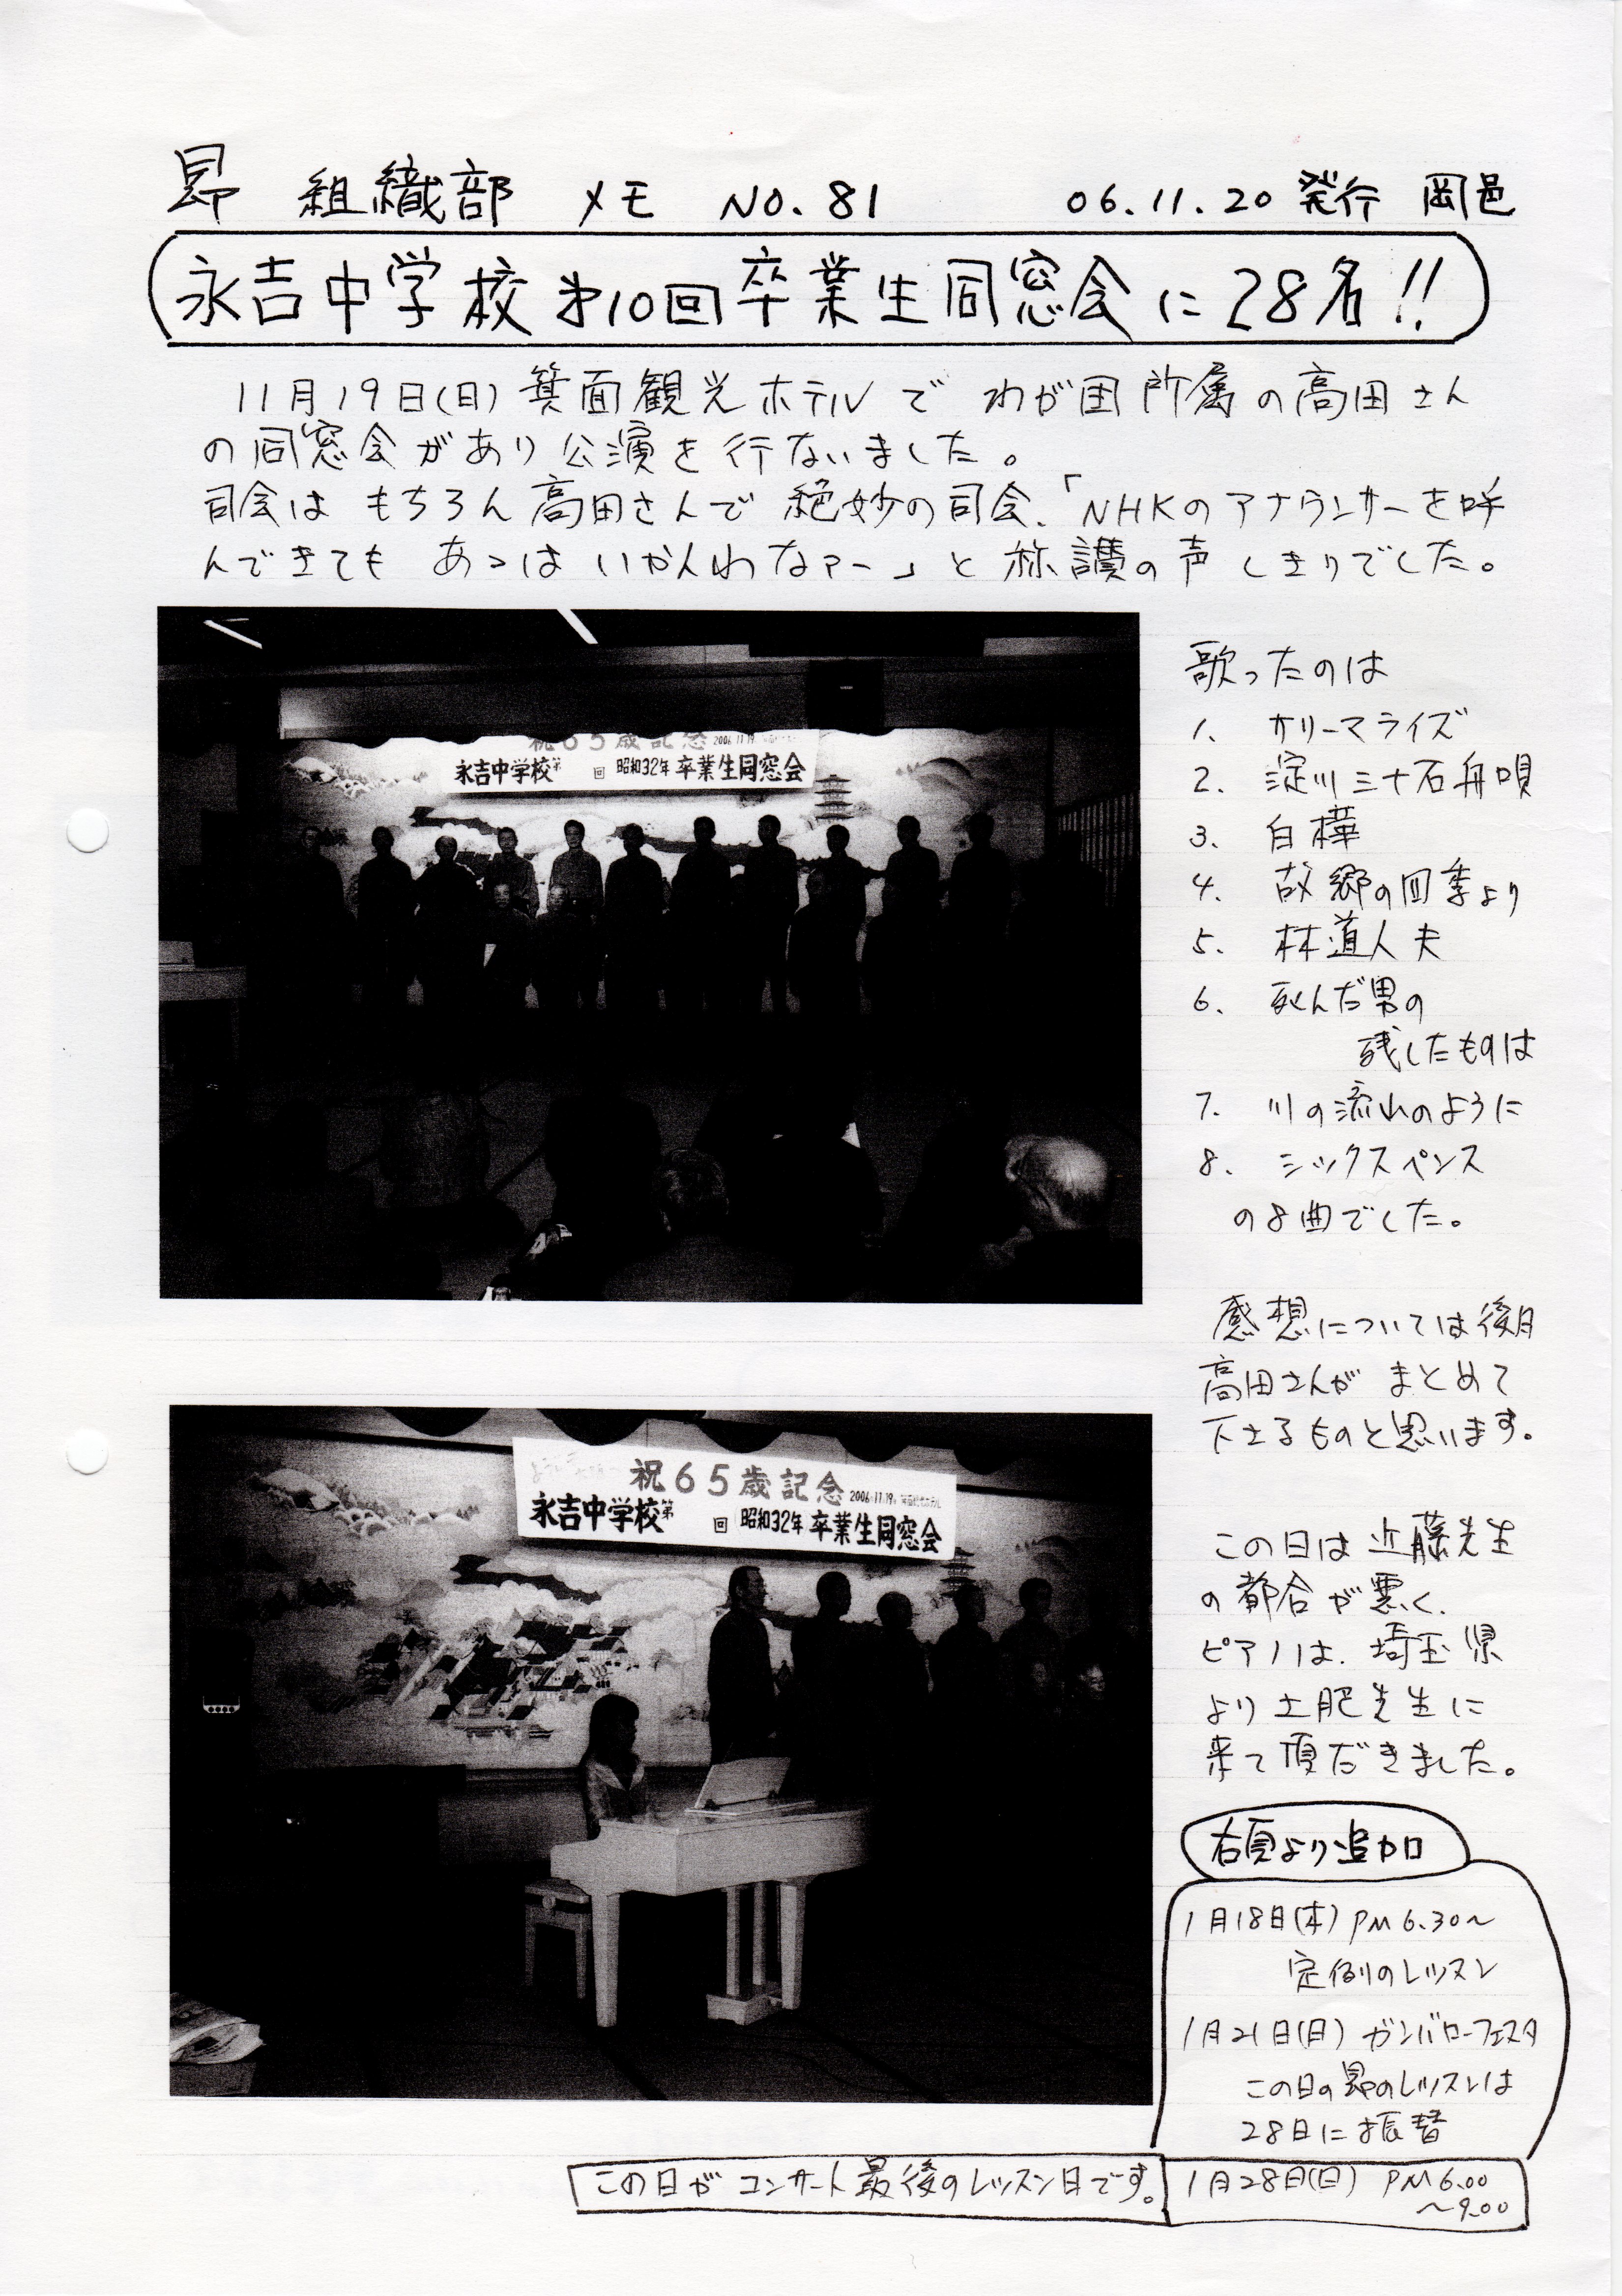 昴 組織部 メモ NO.81 06.11.20 発行 岡邑
永吉中学校第10回卒業生同窓会に28名!!
11月19日(日)箕面観光ホテルで わが団所属の高田さん
の同窓会があり公演を行ないました。
司会は もちろん高田さんで 絶妙の司会、「NHKのアナウンサーを呼
んできても あゝは いかんわなァー」と 称讃の声 しきりでした。
祝65歳記念 2006.11.19
永吉中学校第 回 昭和32年 卒業生同窓会
歌ったのは
1. カリーマライズ
2. 淀川三十石舟唄
3. 白樺
4. 故郷の四季より
5. 林道人夫
6. 死んだ男の
残したものは
7. 川の流れのように
8. シックスペンス
の8曲でした。
感想については後日
高田さんが まとめて
下さるものと思います。
祝65歳記念 2006.11.19
永吉中学校第 回 昭和32年 卒業生同窓会
この日は 近藤先生
の都合が悪く、
ピアノは、埼玉県
より土肥先生に
来て頂だきました。
右頁より追加
1月18日(木) PM 6.30〜
定例のレッスン
1月21日(日) ガンバローフェスタ
この日の昴のレッスンは
28日に振替
この日が コンサート最後のレッスン日です。
1月28日(日) PM 6.00
〜9.00